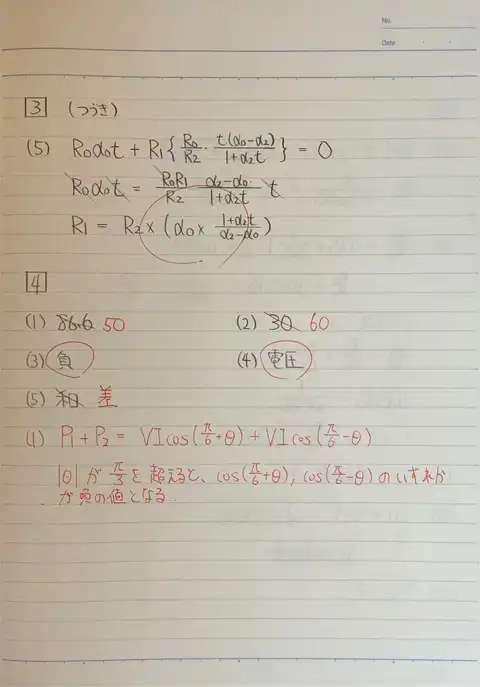 No.
Date
3 (つづき)
(5) R₀α₀t + R₁{R₀/R₂ · t(α₀-α₂)/(1+α₂t)} = 0
R₀α₀t = R₀R₁/R₂ · (α₂-α₀)/(1+α₂t) · t
R₁ = R₂ × (α₀ × (1+α₂t)/(α₂-α₀))
4
(1) 86.6 50 (2) 30 60
(3) 負 (4) 電圧
(5) 和 差
(1) P₁ + P₂ = VI cos(π/6+θ) + VI cos(π/6-θ)
|θ| が π/3 を超えると、cos(π/6+θ), cos(π/6-θ) のいずれか
が負の値となる.